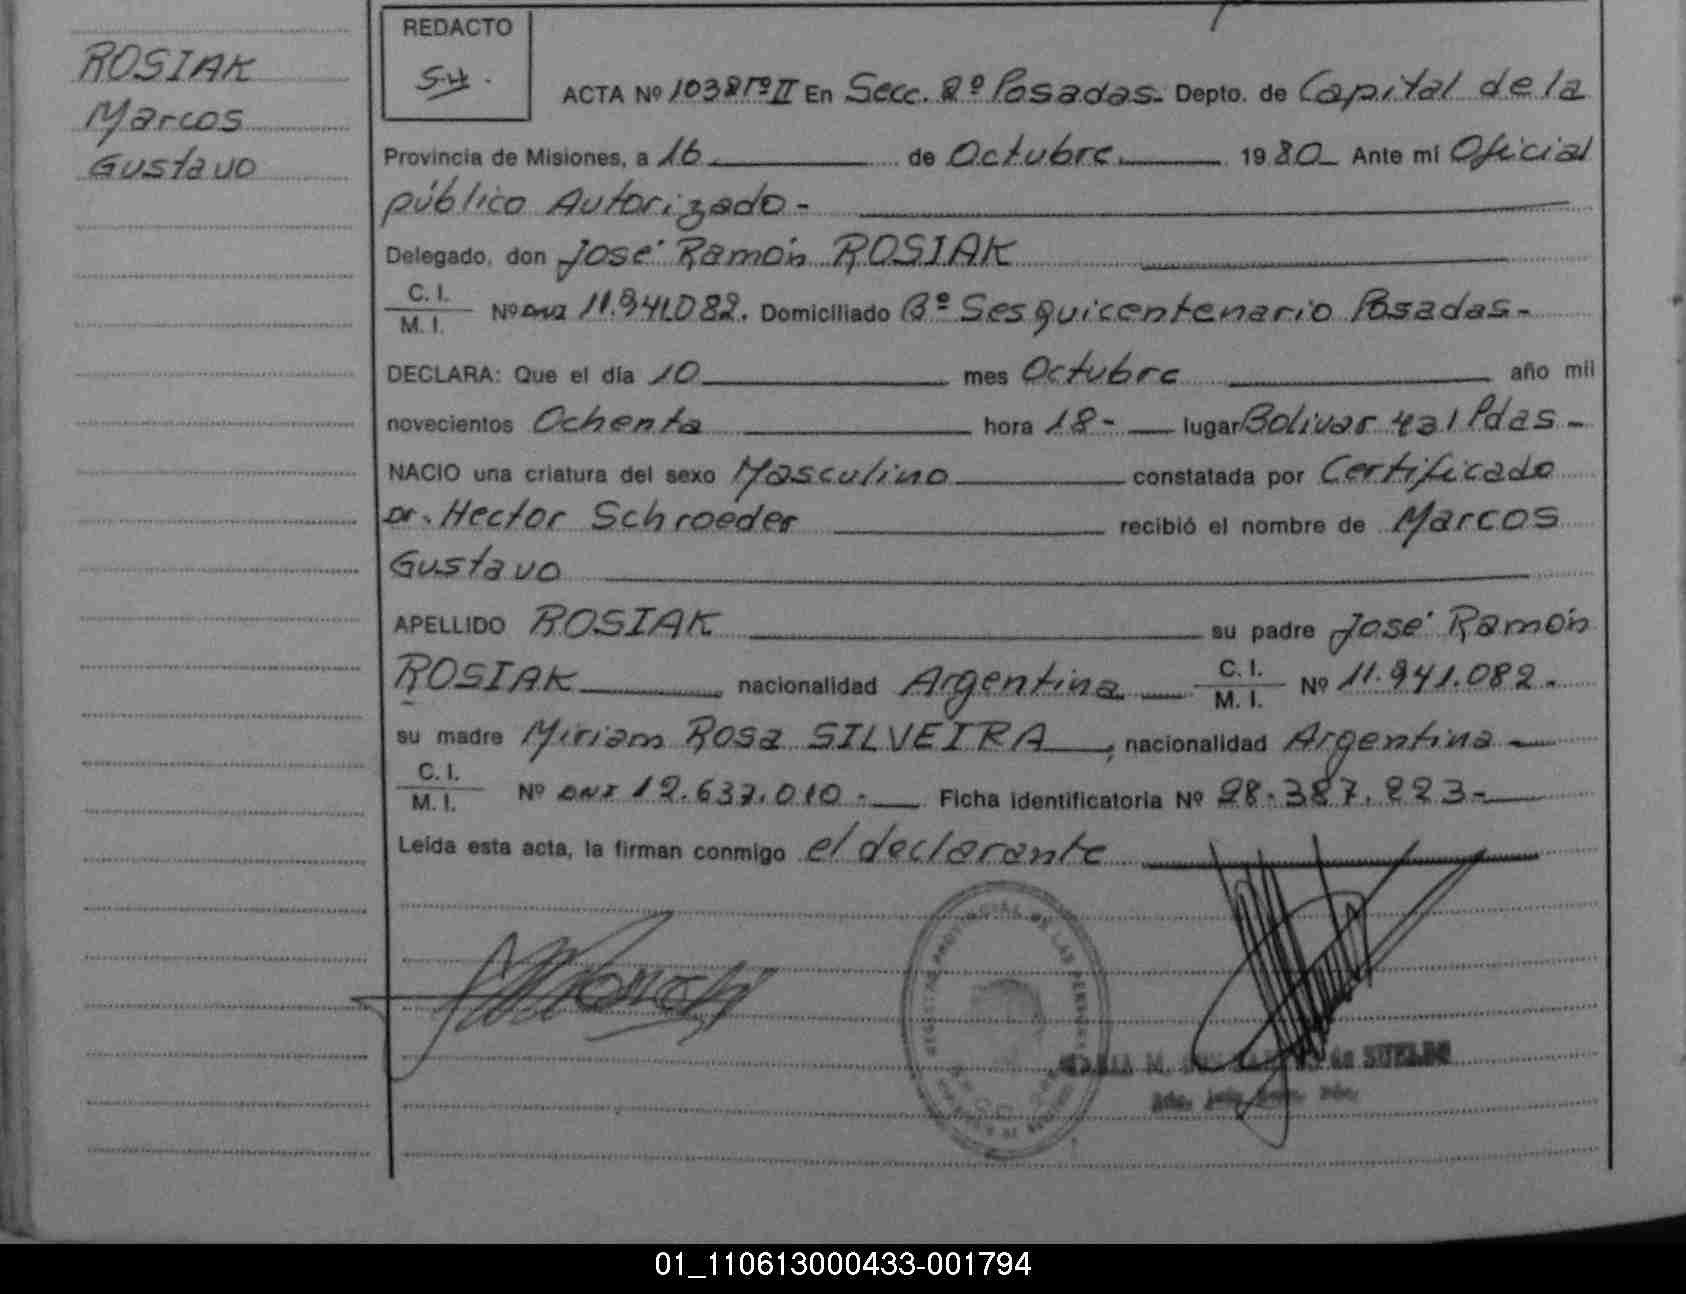 ROSIAK
Marcos
Gustavo
REDACTO
ACTA Nº 1038 Tº II En Secc. 2º Posadas. Depto. de Capital de la
Provincia de Misiones, a 16 de Octubre 1980 Ante mi Oficial
público Autorizado-
Delegado, don José Ramón ROSIAK
C. I.
M. I. Nº DNI 11.941.082. Domiciliado Bº Sesquicentenario Posadas-
DECLARA: Que el día 10 mes Octubre año mil
novecientos Ochenta hora 18- lugar Bolivar 431 Pdas-
NACIO una criatura del sexo Masculino constatada por Certificado
Dr. Hector Schroeder recibió el nombre de Marcos
Gustavo
APELLIDO ROSIAK su padre José Ramón
ROSIAK nacionalidad Argentina C. I.
M. I. Nº 11.941.082.
su madre Miriam Rosa SILVEIRA, nacionalidad Argentina-
C. I.
M. I. Nº DNI 12.637.010- Ficha identificatoria Nº 28.387.223-
Leída esta acta, la firman conmigo el declarante
REGISTRO PROVINCIAL DE LAS PERSONAS
M. de SUELDO
01_110613000433-001794